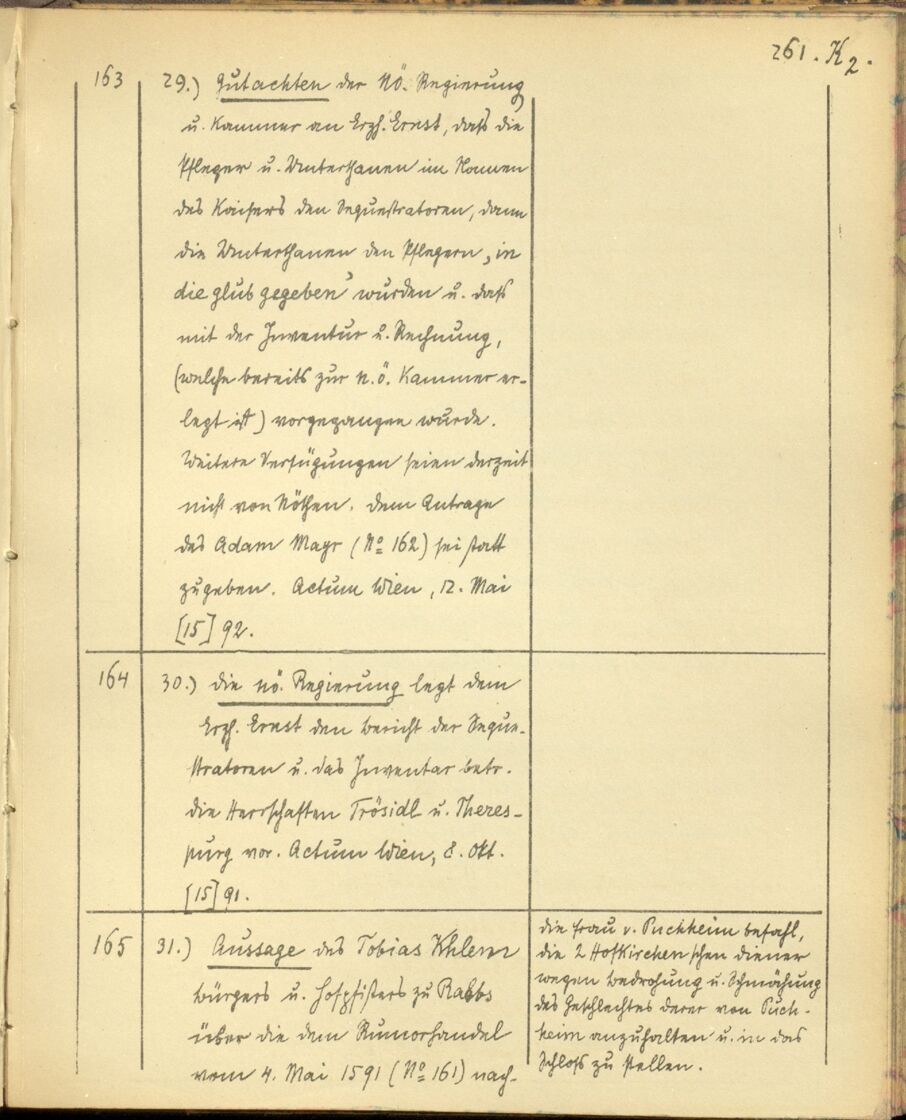 261. K2.
163
29.) Gutachten der nö. Regierung
u. Kammer an Erzh. Ernst, daß die
Pfleger u. Unterthanen im Namen
des Kaisers den Sequestratoren, dann
die Unterthanen den Pflegern „in
die glub gegeben" wurden u. daß
mit der Inventur u. Rechnung,
(welche bereits zur n.ö. Kammer er-
legt ist) vorgegangen wurde.
Weitere Verfügungen seien derzeit
nicht von Nöthen. Dem Antrage
des Adam Mayr (No 162) sei statt
zugeben. Actum Wien, 12. Mai
[15]92.
164
30.) Die nö. Regierung legt dem
Erzh. Ernst den Bericht der Seque-
stratoren u. das Inventar betr.
die Herrschaften Trösidl u. Theres-
purg vor. Actum Wien, 8. Okt.
[15]91.
165
31.) Aussage des Tobias Khlem
Bürgers u. Hofpfisters zu Raabs
über die dem Rumorhandel
vom 4. Mai 1591 (No 161) nach-
Die Frau v. Puchheim befahl,
die 2 Hofkirchen'schen Diener
wegen Bedrohung u. Schmähung
des Geschlechtes derer von Puch-
heim anzuhalten u. in das
Schloß zu stellen.